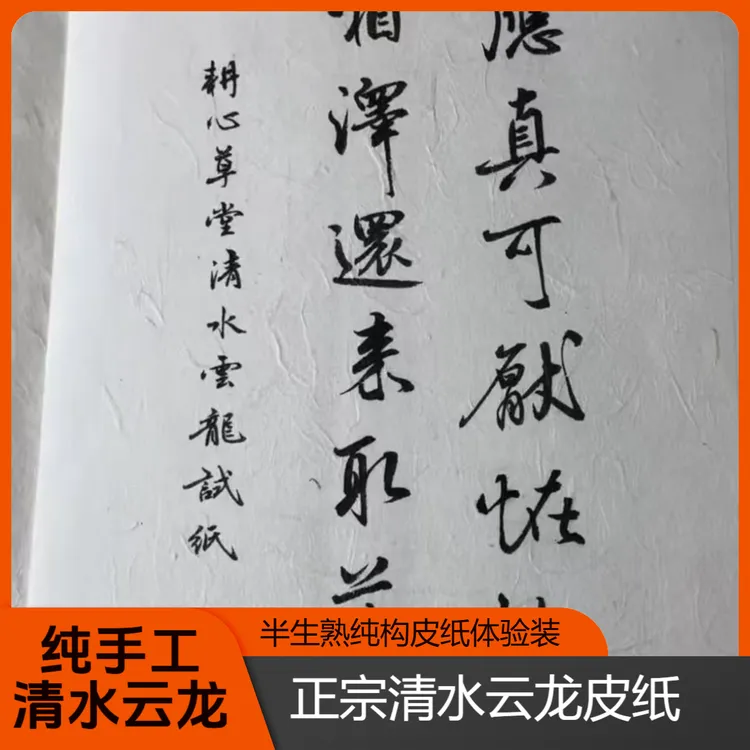 應真可獻恠
澤還来取
耕心草堂清水雲龍試紙
纯手工
清水云龙
半生熟纯构皮纸体验装
正宗清水云龙皮纸